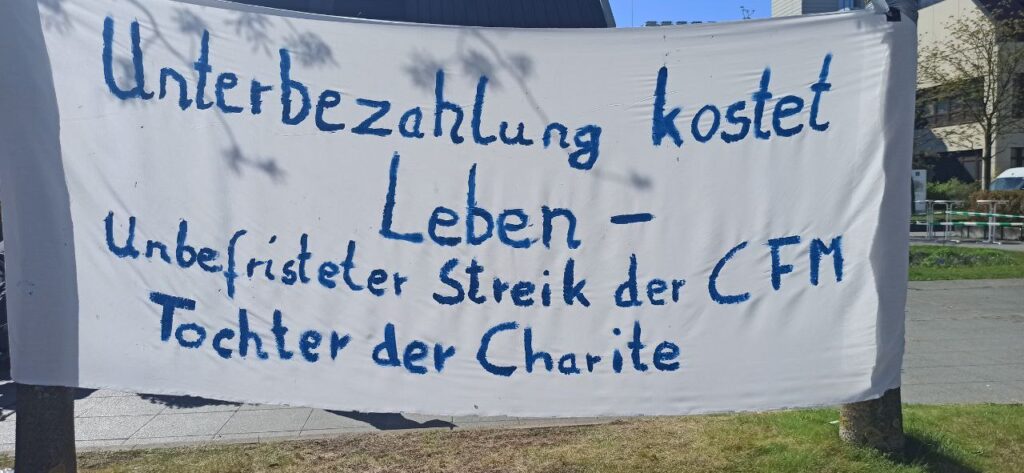 Unterbezahlung kostet
Leben -
Unbefristeter Streik der CFM
Tochter der Charite